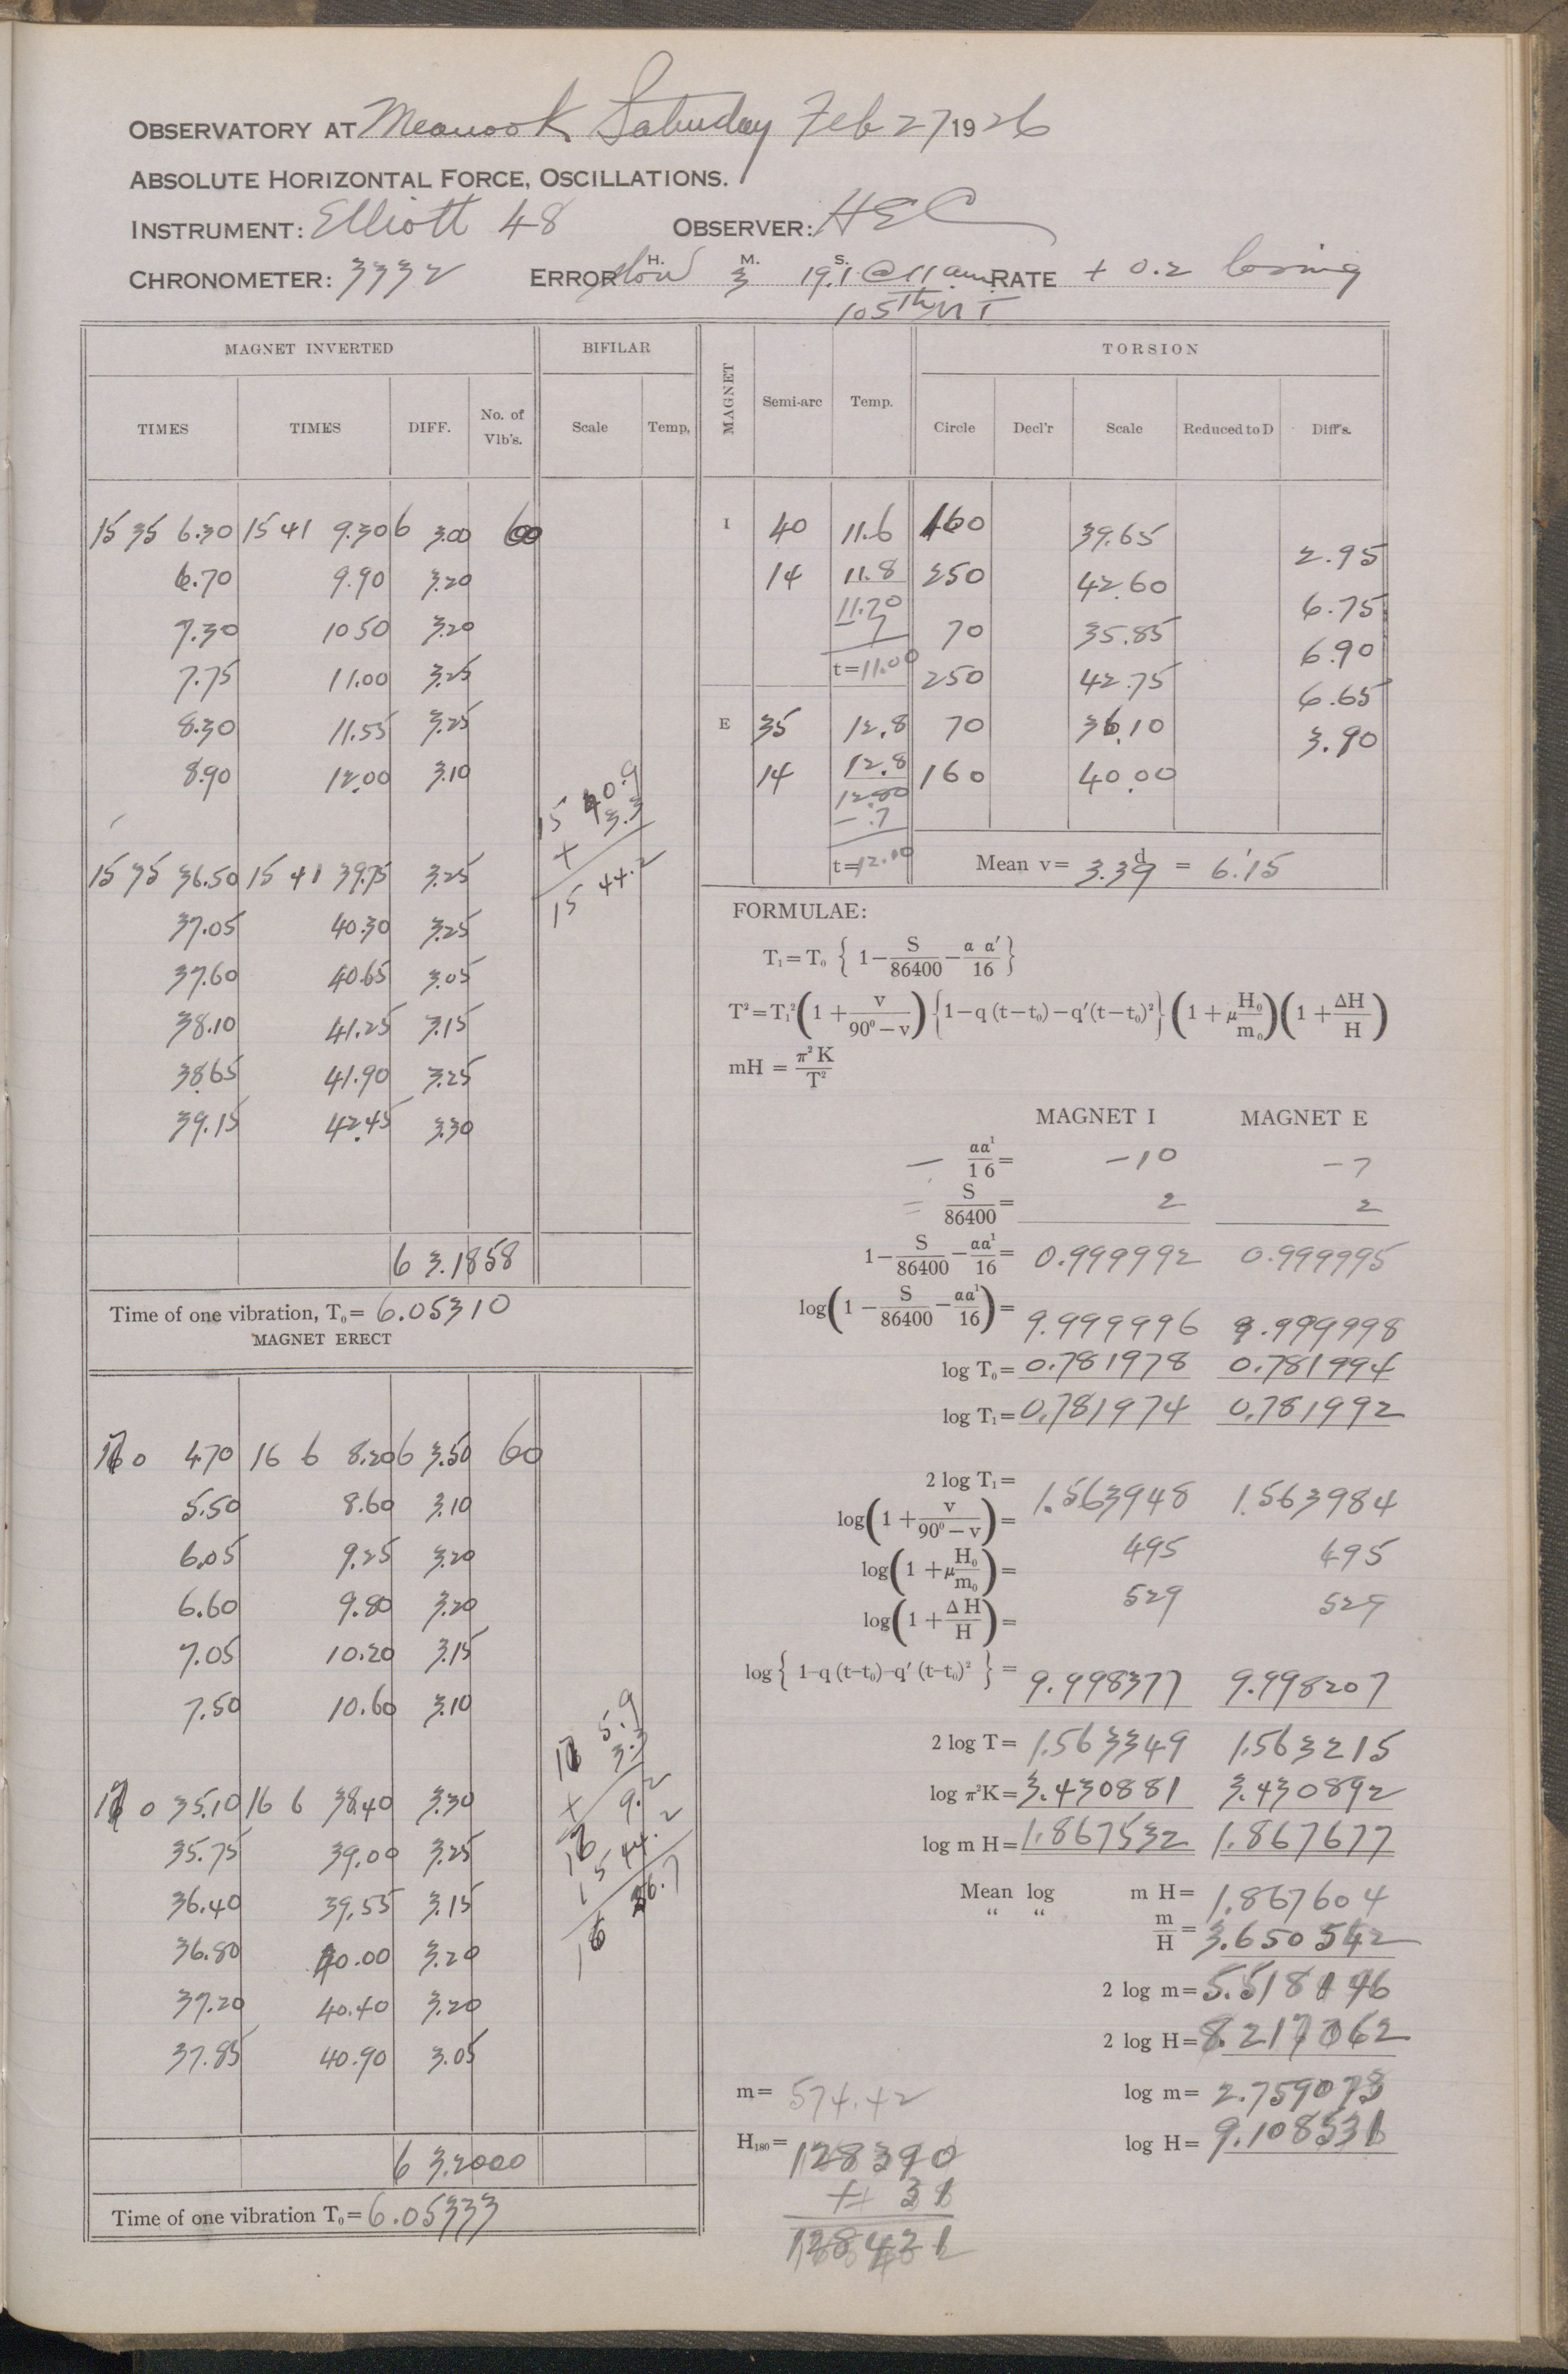 OBSERVATORY AT Meanook Saturday Feb 27 1926
ABSOLUTE HORIZONTAL FORCE, OSCILLATIONS.
INSTRUMENT: Elliott 48 OBSERVER: HEC
CHRONOMETER: 3332 ERROR slow H. M. 3 S. 19.1 @ 11 am RATE + 0.2 losing
105th M T
MAGNET INVERTED BIFILAR
TIMES TIMES DIFF. No. of Vib's. Scale Temp.
15 35 6.30 15 41 9.30 6 3.00 60
6.70 9.90 3.20
7.30 10 50 3.20
7.75 11.00 3.25
8.30 11.55 3.25
8.90 12.00 3.10
15 40.9
+ 3.3
15 44.2
15 35 36.50 15 41 39.75 3.25
37.05 40.30 3.25
37.60 40.65 3.05
38.10 41.25 3.15
38.65 41.90 3.25
39.15 42.45 3.30
6 3.1858
Time of one vibration, T₀= 6.05310
MAGNET ERECT
16 0 4.70 16 6 8.20 6 3.50 60
5.50 8.60 3.10
6.05 9.25 3.20
6.60 9.80 3.20
7.05 10.20 3.15
7.50 10.60 3.10
16 5.9
+ 3.3
16 9.2
15 44.2
16 0 35.10 16 6 38.40 3.30
35.75 39.00 3.25
36.40 39.55 3.15
36.80 40.00 3.20
37.20 40.40 3.20
37.85 40.90 3.05
6 3.2000
Time of one vibration T₀= 6.05333
MAGNET Semi-arc Temp. TORSION
Circle Decl'r Scale Reduced to D Diff's.
I 40 11.6 160 39.65
2.95
14 11.8 250 42.60
11.70 6.75
– 7 70 35.85
6.90
t= 11.00 250 42.75
6.65
E 35 12.8 70 36.10
3.90
14 12.8 160 40.00
12.80
– .7
t= 12.10 Mean v= 3.39 d = 6.'15
FORMULAE:
T₁=T₀ { 1– S/86400 – α α′/16 }
T²=T₁²(1 + v/90⁰–v){1–q (t–t₀)–q′(t–t₀)²}(1 + μ H₀/m₀)(1 + ΔH/H)
mH = π²K/T²
MAGNET I MAGNET E
– αα¹/16 = –10 –7
= S/86400 = 2 2
1– S/86400 – αα¹/16 = 0.999992 0.999995
log(1 – S/86400 – αα¹/16) = 9.999996 9.999998
log T₀= 0.781978 0.781994
log T₁= 0.781974 0.781992
2 log T₁= 1.563948 1.563984
log(1 + v/90⁰–v) = 495 495
log(1 + μ H₀/m₀) = 529 529
log(1 + Δ H/H) =
log { 1–q (t–t₀)–q′ (t–t₀)² } = 9.998377 9.998207
2 log T= 1.563349 1.563215
log π²K= 3.430881 3.430892
log m H= 1.867532 1.867677
Mean log m H= 1.867604
“ “ m/H = 3.650542
2 log m= 5.518146
2 log H= 8.217062
m= 574.42 log m= 2.759073
H₁₈₀= 128390 log H= 9.108531
+ 31
128421